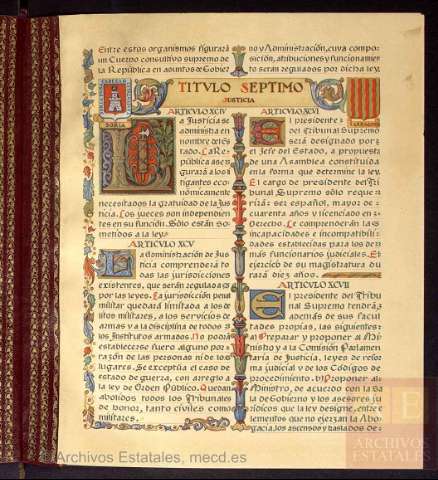 Entre estos organismos figurará
un Cuerpo consultivo supremo de
la República en asuntos de Gobier
no y Administración, cuya compo-
sición, atribuciones y funcionamien
to serán regulados por dicha ley.
TITVLO SEPTIMO
JUSTICIA
CASTILLA
SORIA
ARTICULO XCIV
La Justicia se
administra en
nombre del Es
tado. La Re
pública asegu
gurará a los li
tigantes eco
nómicamente
necesitados la gratuidad de la Jus
ticia. Los jueces son independien
tes en su función. Sólo están so-
metidos a la ley.
ARTICULO XCV
La administración de Jus
ticia comprenderá to
das las jurisdicciones
existentes, que serán reguladas
por las leyes. La jurisdicción penal
militar quedará limitada a los de
litos militares, a los servicios de
armas y a la disciplina de todos
los Institutos armados. No podrá
establecerse fuero alguno por
razón de las personas ni de los
lugares. Se exceptúa el caso de
estado de guerra, con arreglo a
la ley de Orden Público. Quedan
abolidos todos los Tribunales
de honor, tanto civiles como
militares.
ARTICULO XCVI
El presidente del
Tribunal Supremo
será designado por
el Jefe del Estado, a propuesta
de una Asamblea constituída
en la forma que determine la ley.
El cargo de presidente del Tri
bunal Supremo sólo reque-
rirá: ser español, mayor de
cuarenta años y licenciado en
Derecho. Le comprenderán las
incapacidades e incompatibili-
dades establecidas para los de
más funcionarios judiciales. El
ejercicio de su magistratura du
rará diez años.
ARTICULO XCVII
El presidente del Tribu
nal Supremo tendrá,
además de sus facul
tades propias, las siguientes:
a) Preparar y proponer al Mi
nistro y a la Comisión Parlamen
taria de Justicia, leyes de refor
ma judicial y de los Códigos de
procedimiento. b) Proponer al
Ministro, de acuerdo con la Sa
la de Gobierno y los asesores ju
rídicos que la ley designe, entre
elementos que no ejerzan la Abo
gacía, los ascensos y traslados de
© Archivos Estatales, mecd.es
ARCHIVOS
ESTATALES